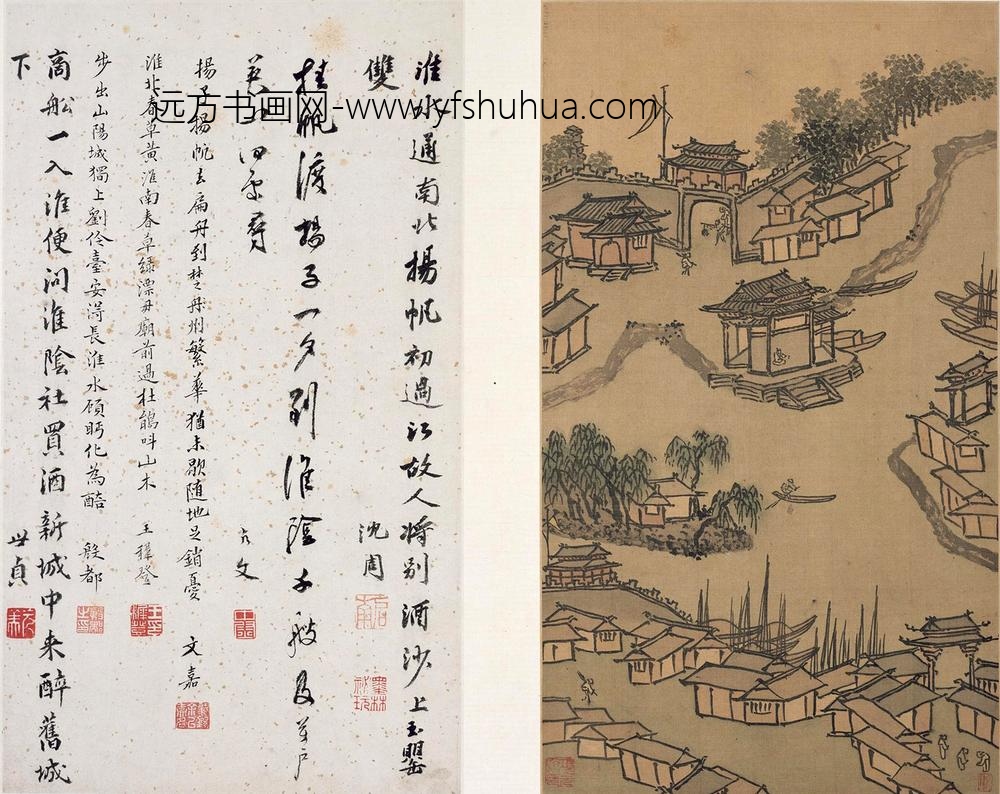 远方书画网-www.yfshuhua.com
淮水通南北揚帆初過江故人將別酒沙上玉罌
雙 沈周
挂帆渡揚子一夕到淮陰千艘及萬戶
英 何處尋 文
揚子揚帆去扁舟到楚舟州繁華猶未歇隨地足銷憂 文嘉
淮北春草黃淮南春草綠漂母廟前過杜鵑叫山木 王穉登
步出山陽城獨上劉伶臺安得長淮水顧眄化為醅 殷都
商船一入淮便問淮陰社買酒新城中来醉舊城
下 世貞